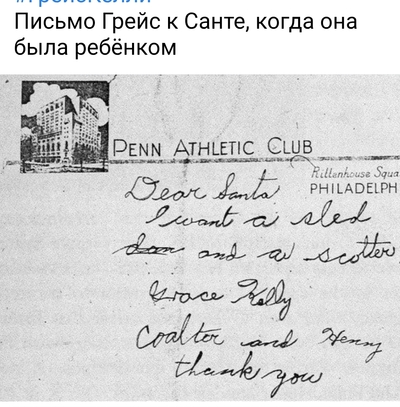 #ГрейсКелли
Письмо Грейс к Санте, когда она
была ребёнком
PENN ATHLETIC CLUB
Rittenhouse Squa
PHILADELPH
Dear Santa
I want a sled
and a scotter
Grace Kelly
Coalter and Henny
thank you